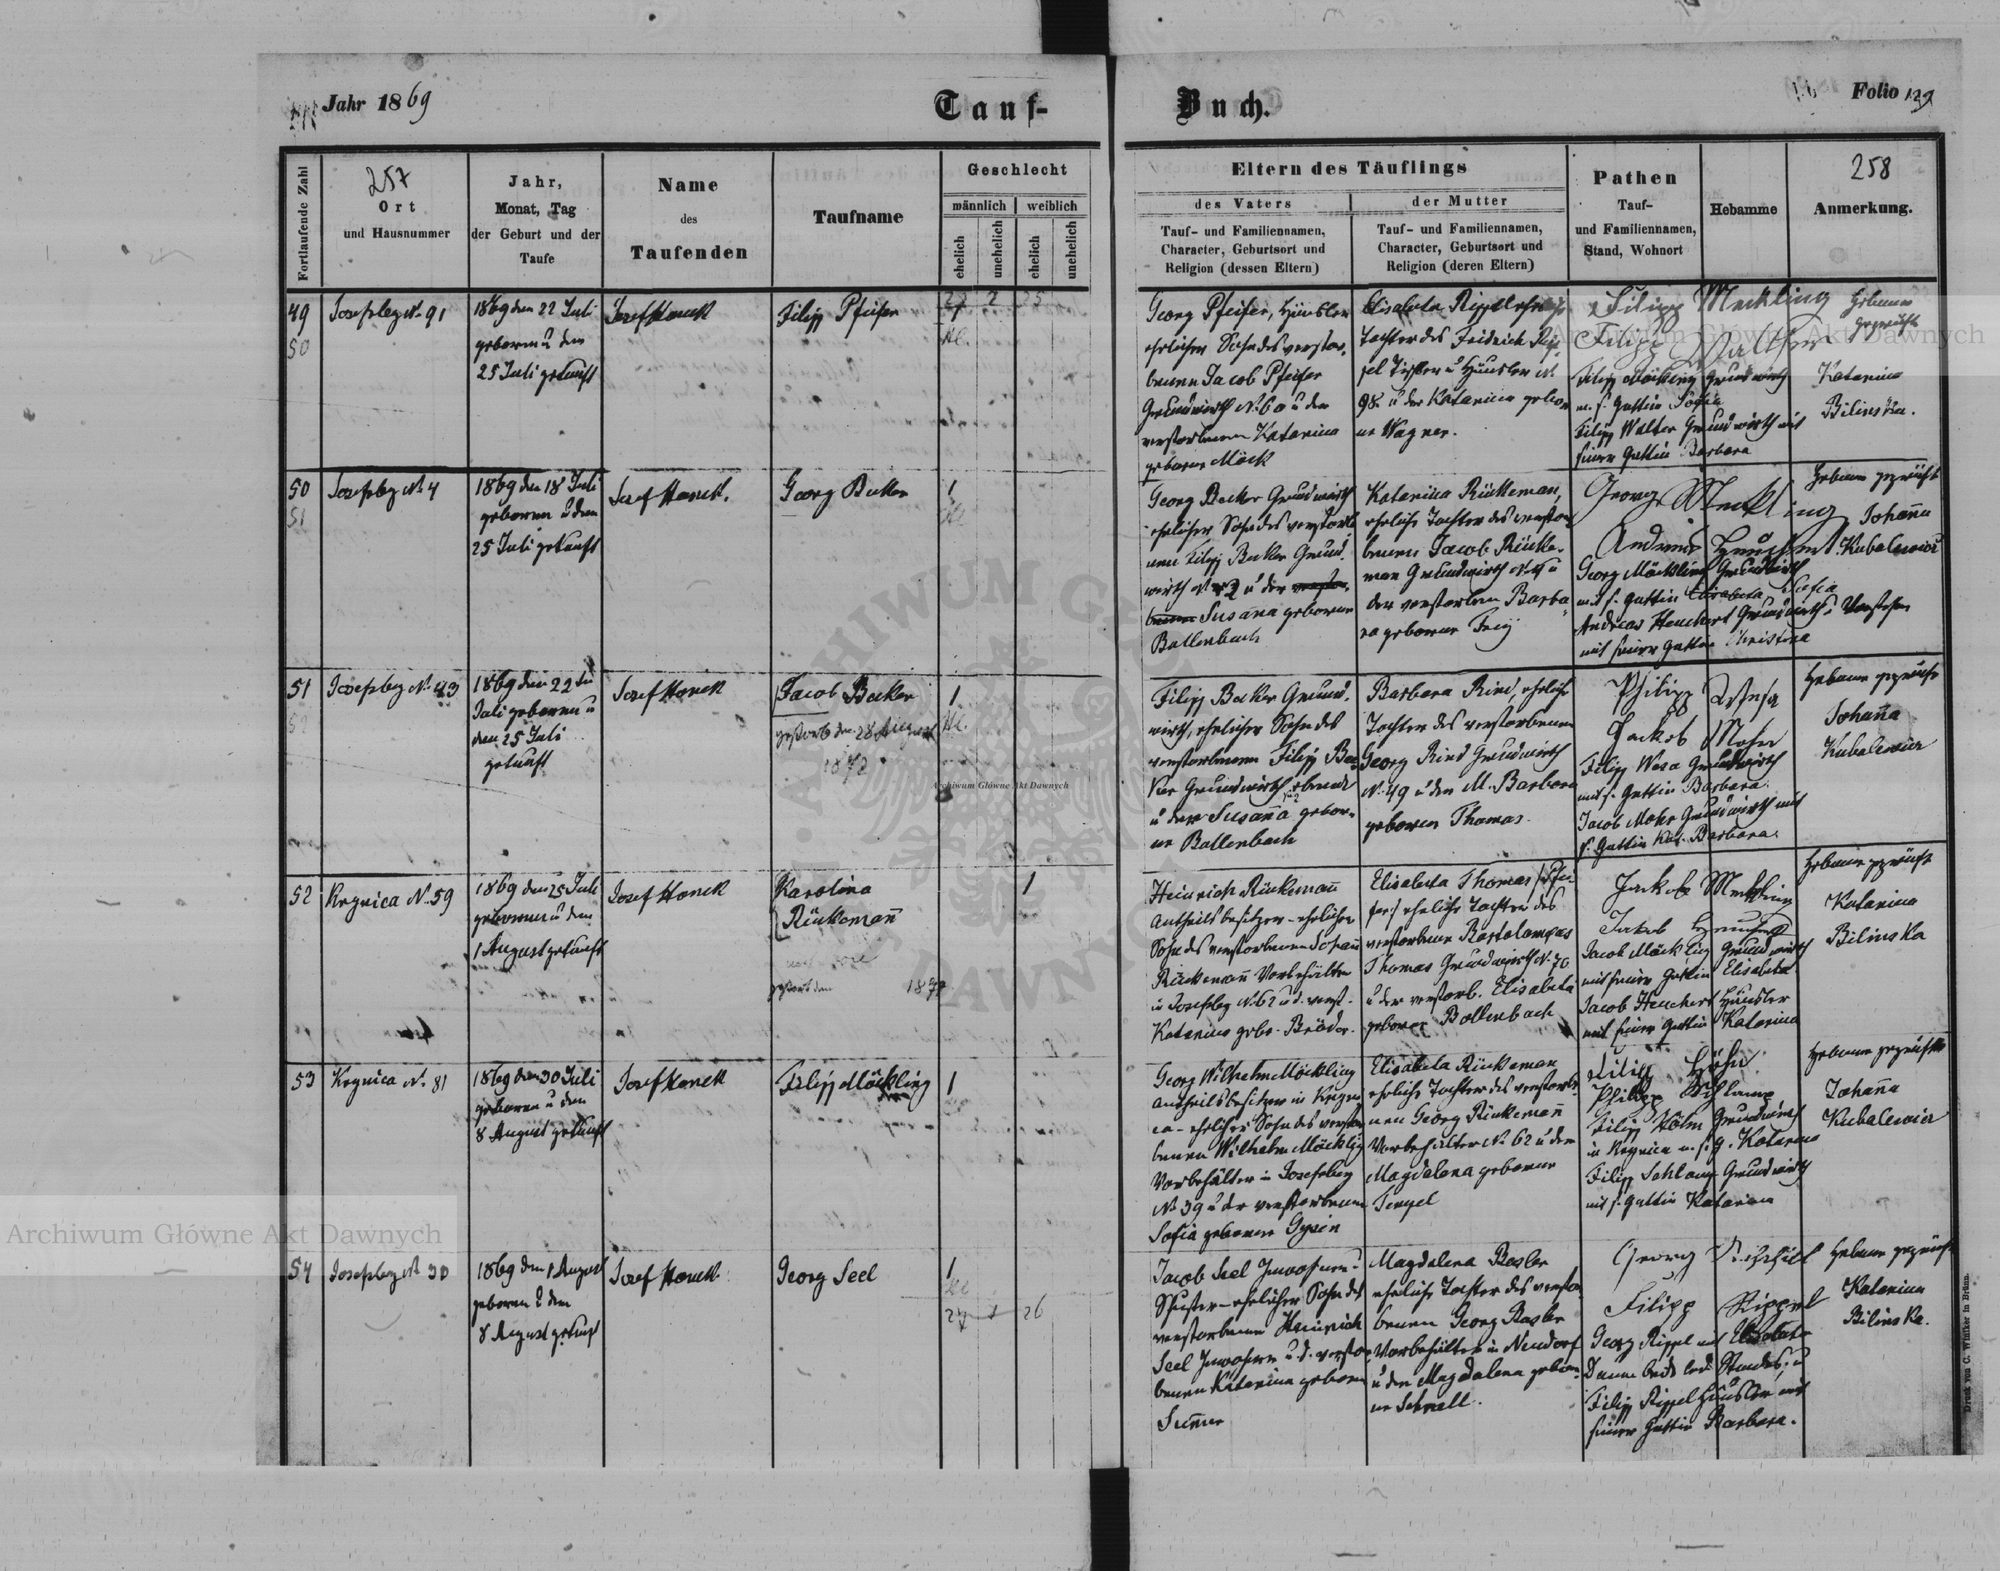 Jahr 1869
Tauf-
Buch.
Folio 129
Fortlaufende Zahl
257
Ort
und Hausnummer
Jahr,
Monat, Tag
der Geburt und der
Taufe
Name
des
Taufenden
Taufname
Geschlecht
männlich
weiblich
ehelich
unehelich
ehelich
unehelich
Eltern des Täuflings
des Vaters
Tauf- und Familiennamen,
Character, Geburtsort und
Religion (dessen Eltern)
der Mutter
Tauf- und Familiennamen,
Character, Geburtsort und
Religion (deren Eltern)
Pathen
Tauf-
und Familiennamen,
Stand, Wohnort
Hebamme
258
Anmerkung.
49
50
Josefsbg N. 91
1869 den 22 Juli
geboren u den
25 Juli getauft
Josef Honek
Filipp Pfeifer
1
Georg Pfeifer, Häusler
ehelicher Sohn des verstor-
benen Jacob Pfeifer
Grundwirth N. 60 u der
verstorbenen Katarina
geborene Möck
Elisabeta Rippel eheliche
Tochter des Fridrich Rip-
pel Tischler u Häusler N.
98. u der Katarina gebor
ne Wagner.
Filipp Meckling
Filipp Walther
Filipp Möckling Grundwirth
m. s. Gattin Sofia
Filipp Walter Grundwirth mit
seiner Gattin Barbara
Hebame
geprüft
Katarina
Bilinska.
50
51
Josefsbg N. 4
1869 den 18 Juli
geboren u den
25 Juli getauft
Josef Honek.
Georg Becker
1
Georg Becker Grundwirth
ehelicher Sohn des verstorb
nen Filipp Becker Grund
wirth N. 2 u der verstor-
benen Susanna geborene
Bollenbach
Katarina Rückeman,
eheliche Tochter des verstor
benen Jacob Rücke-
man Grundwirth N. u
der verstorben Barba
ra geborene Frey
Georg Meckling
Andreas Heuchert
Georg Möckling Grundwirth
mit s. Gattin Elisabeta Sofia
Andreas Heuchert Grundwirth
mit seiner Gattin Christina
Hebame geprüft
Johanna
Kubalewicz
51
52
Josefsbg N. 43
1869 den 22 Ju
Juli geboren u
den 25 Juli
getauft
Josef Honek
Jacob Becker
gestorb den 28 August
1872
1
Filipp Becker Grund-
wirth, ehelicher Sohn des
verstorbenen Filipp Bec-
ker Grundwirth
u der Susanna gebor-
ne Bollenbach
Barbara Rind, eheliche
Tochter des verstorbenen
Georg Rind Grundwirth
N. 49 u der M. Barbara
geboren Thomas.
Philipp Wesa
Jackob Mohr
Filipp Wesa Grundwirth
mit s. Gattin Barbara.
Jacob Mohr Grundwirth mit
s. Gattin Barbara.
Hebame geprüft
Johanna
Kubalewicz
52
Krynica N. 59
1869 den 25 Juli
geboren u den
1 August getauft
Josef Honek
Karolina
Rückemann
gestorb den 187
1
Heinrich Rückemann
Antheilsbesitzer - ehelicher
Sohn des verstorbenen Johann
Rückemann Vorbehälter
in Josefsbg N. 62 u d. verst.
Katarina gebo. Bräder.
Elisabeta Thomas
eheliche Tochter des
verstorbenen Bartolomeus
Thomas Grundwirth N. 70
u der verstorb. Elisabeta
geborne Bollenbach
Jakob Mecklin
Jakob Heuchert
Jacob Möckling Grundwirth
mit seiner Gattin Elisabeta
Jacob Heuchert Häusler
mit seiner Gattin Katarina
Hebame geprüft
Katarina
Bilinska
53
Krynica N. 81
1869 den 30 Juli
geboren u den
8 August getauft
Josef Honek
Filipp Möckling
1
Georg Wilhelm Möckling
Antheilsbesitzer in Kryni
ca - ehelicher Sohn des verstor
benen Wilhelm Möckling
Vorbehälter in Josefsbeg
N. 39 u der verstorbenen
Sofia geborene Gysin
Elisabeta Rückeman
eheliche Tochter des verstorb
nen Georg Rückemann
Vorbehälter N. 62 u der
Magdalena geborene
Filipp Höhn
Philipp Schlamp
Filipp Höhn Grundwirth
in Krynica m. s. g. Katarina
Filipp Schlamp Grundwirth
mit s. Gattin Katarina
Hebame geprüft
Johanna
Kubalewicz
54
Josefsbg N 30
1869 den 1 August
geboren u den
8 August getauft
Josef Honek.
Georg Seel
1
27 1 26
Jacob Seel Inwohner u
Schuster - ehelicher Sohn des
verstorbenen Heinrich
Seel Inwohner u d. verstor
benen Katarina geboren
Magdalena Basler
eheliche Tochter des verstor
benen Georg Basler
Vorbehälter in Neudorf
u der Magdalena gebor-
ne Schnell.
Georg
Filipp Rippel
Georg Rippel mit Elisabeta
Daum beide led. Standes, u
Filipp Rippel Häusler mit
seiner Gattin Barbara.
Hebame geprüft
Katarina
Bilinska.
Druck von C. Winiker in Brünn.
Archiwum Główne Akt Dawnych
Archiwum Główne Akt Dawnych
Archiwum Główne Akt Dawnych